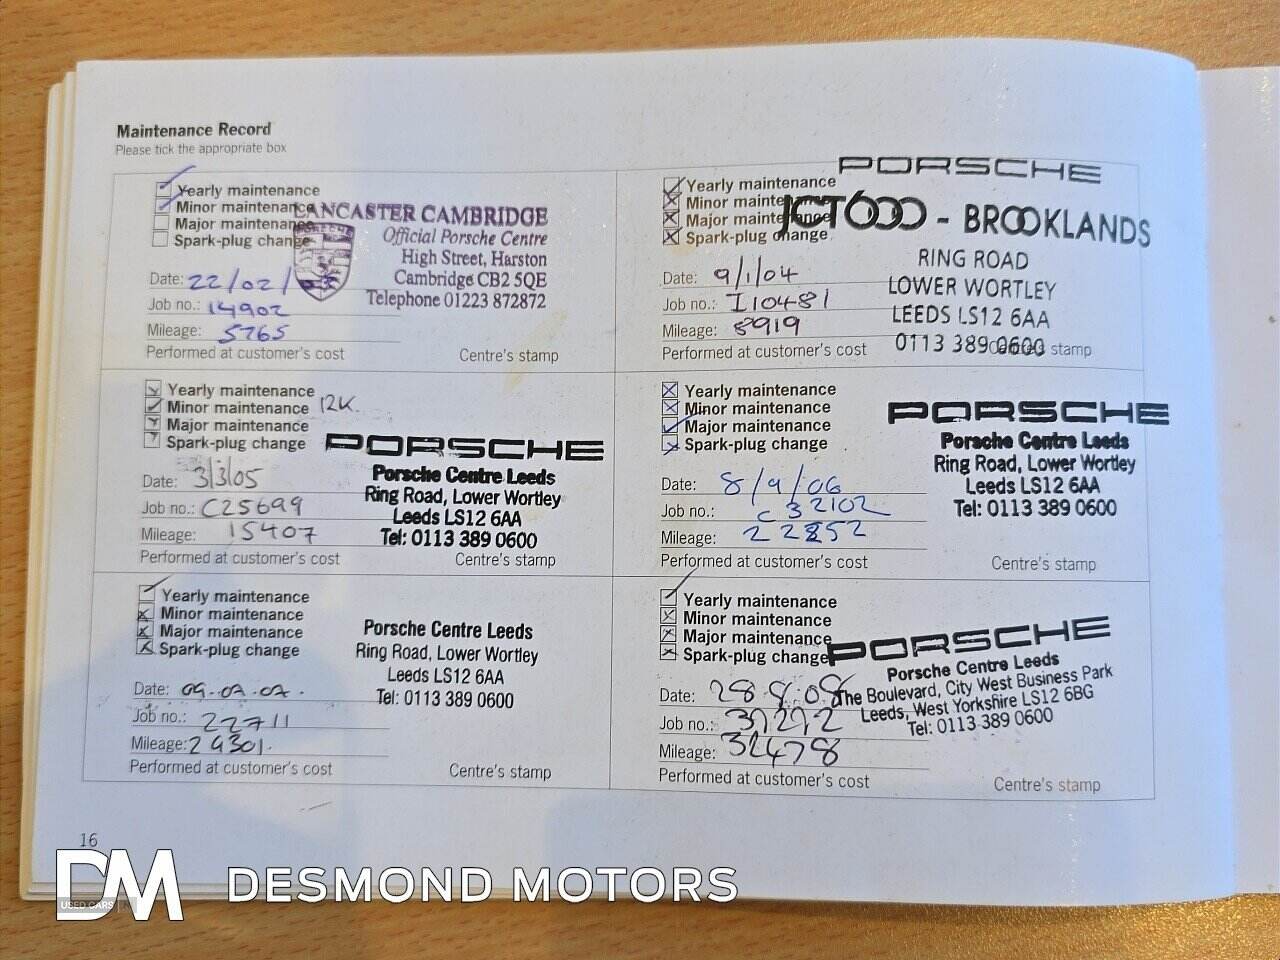 Maintenance Record
Please tick the appropriate box
Yearly maintenance
Minor maintenance
Major maintenance
Spark-plug change
Date: 22/02/
Job no.: 14902
Mileage: 5765
Performed at customer's cost
LANCASTER CAMBRIDGE
Official Porsche Centre
High Street, Harston
Cambridge CB2 5QE
Telephone 01223 872872
Centre's stamp
Yearly maintenance
Minor maintenance
Major maintenance
Spark-plug change
Date: 9/1/04
Job no.: I10481
Mileage: 8919
Performed at customer's cost
PORSCHE
JCT600 - BROOKLANDS
RING ROAD
LOWER WORTLEY
LEEDS LS12 6AA
0113 389 0600
Centre's stamp
Yearly maintenance
Minor maintenance 12K.
Major maintenance
Spark-plug change
Date: 3/3/05
Job no.: C25699
Mileage: 15407
Performed at customer's cost
PORSCHE
Porsche Centre Leeds
Ring Road, Lower Wortley
Leeds LS12 6AA
Tel: 0113 389 0600
Centre's stamp
Yearly maintenance
Minor maintenance
Major maintenance
Spark-plug change
Date: 8/9/06
Job no.: C32102
Mileage: 22852
Performed at customer's cost
PORSCHE
Porsche Centre Leeds
Ring Road, Lower Wortley
Leeds LS12 6AA
Tel: 0113 389 0600
Centre's stamp
Yearly maintenance
Minor maintenance
Major maintenance
Spark-plug change
Date:
Job no.: 22711
Mileage: 24301.
Performed at customer's cost
Porsche Centre Leeds
Ring Road, Lower Wortley
Leeds LS12 6AA
Tel: 0113 389 0600
Centre's stamp
Yearly maintenance
Minor maintenance
Major maintenance
Spark-plug change
Date: 28.8.08
Job no.: 37272
Mileage: 32478
Performed at customer's cost
PORSCHE
Porsche Centre Leeds
The Boulevard, City West Business Park
Leeds, West Yorkshire LS12 6BG
Tel: 0113 389 0600
Centre's stamp
16
DM DESMOND MOTORS
USED CARS